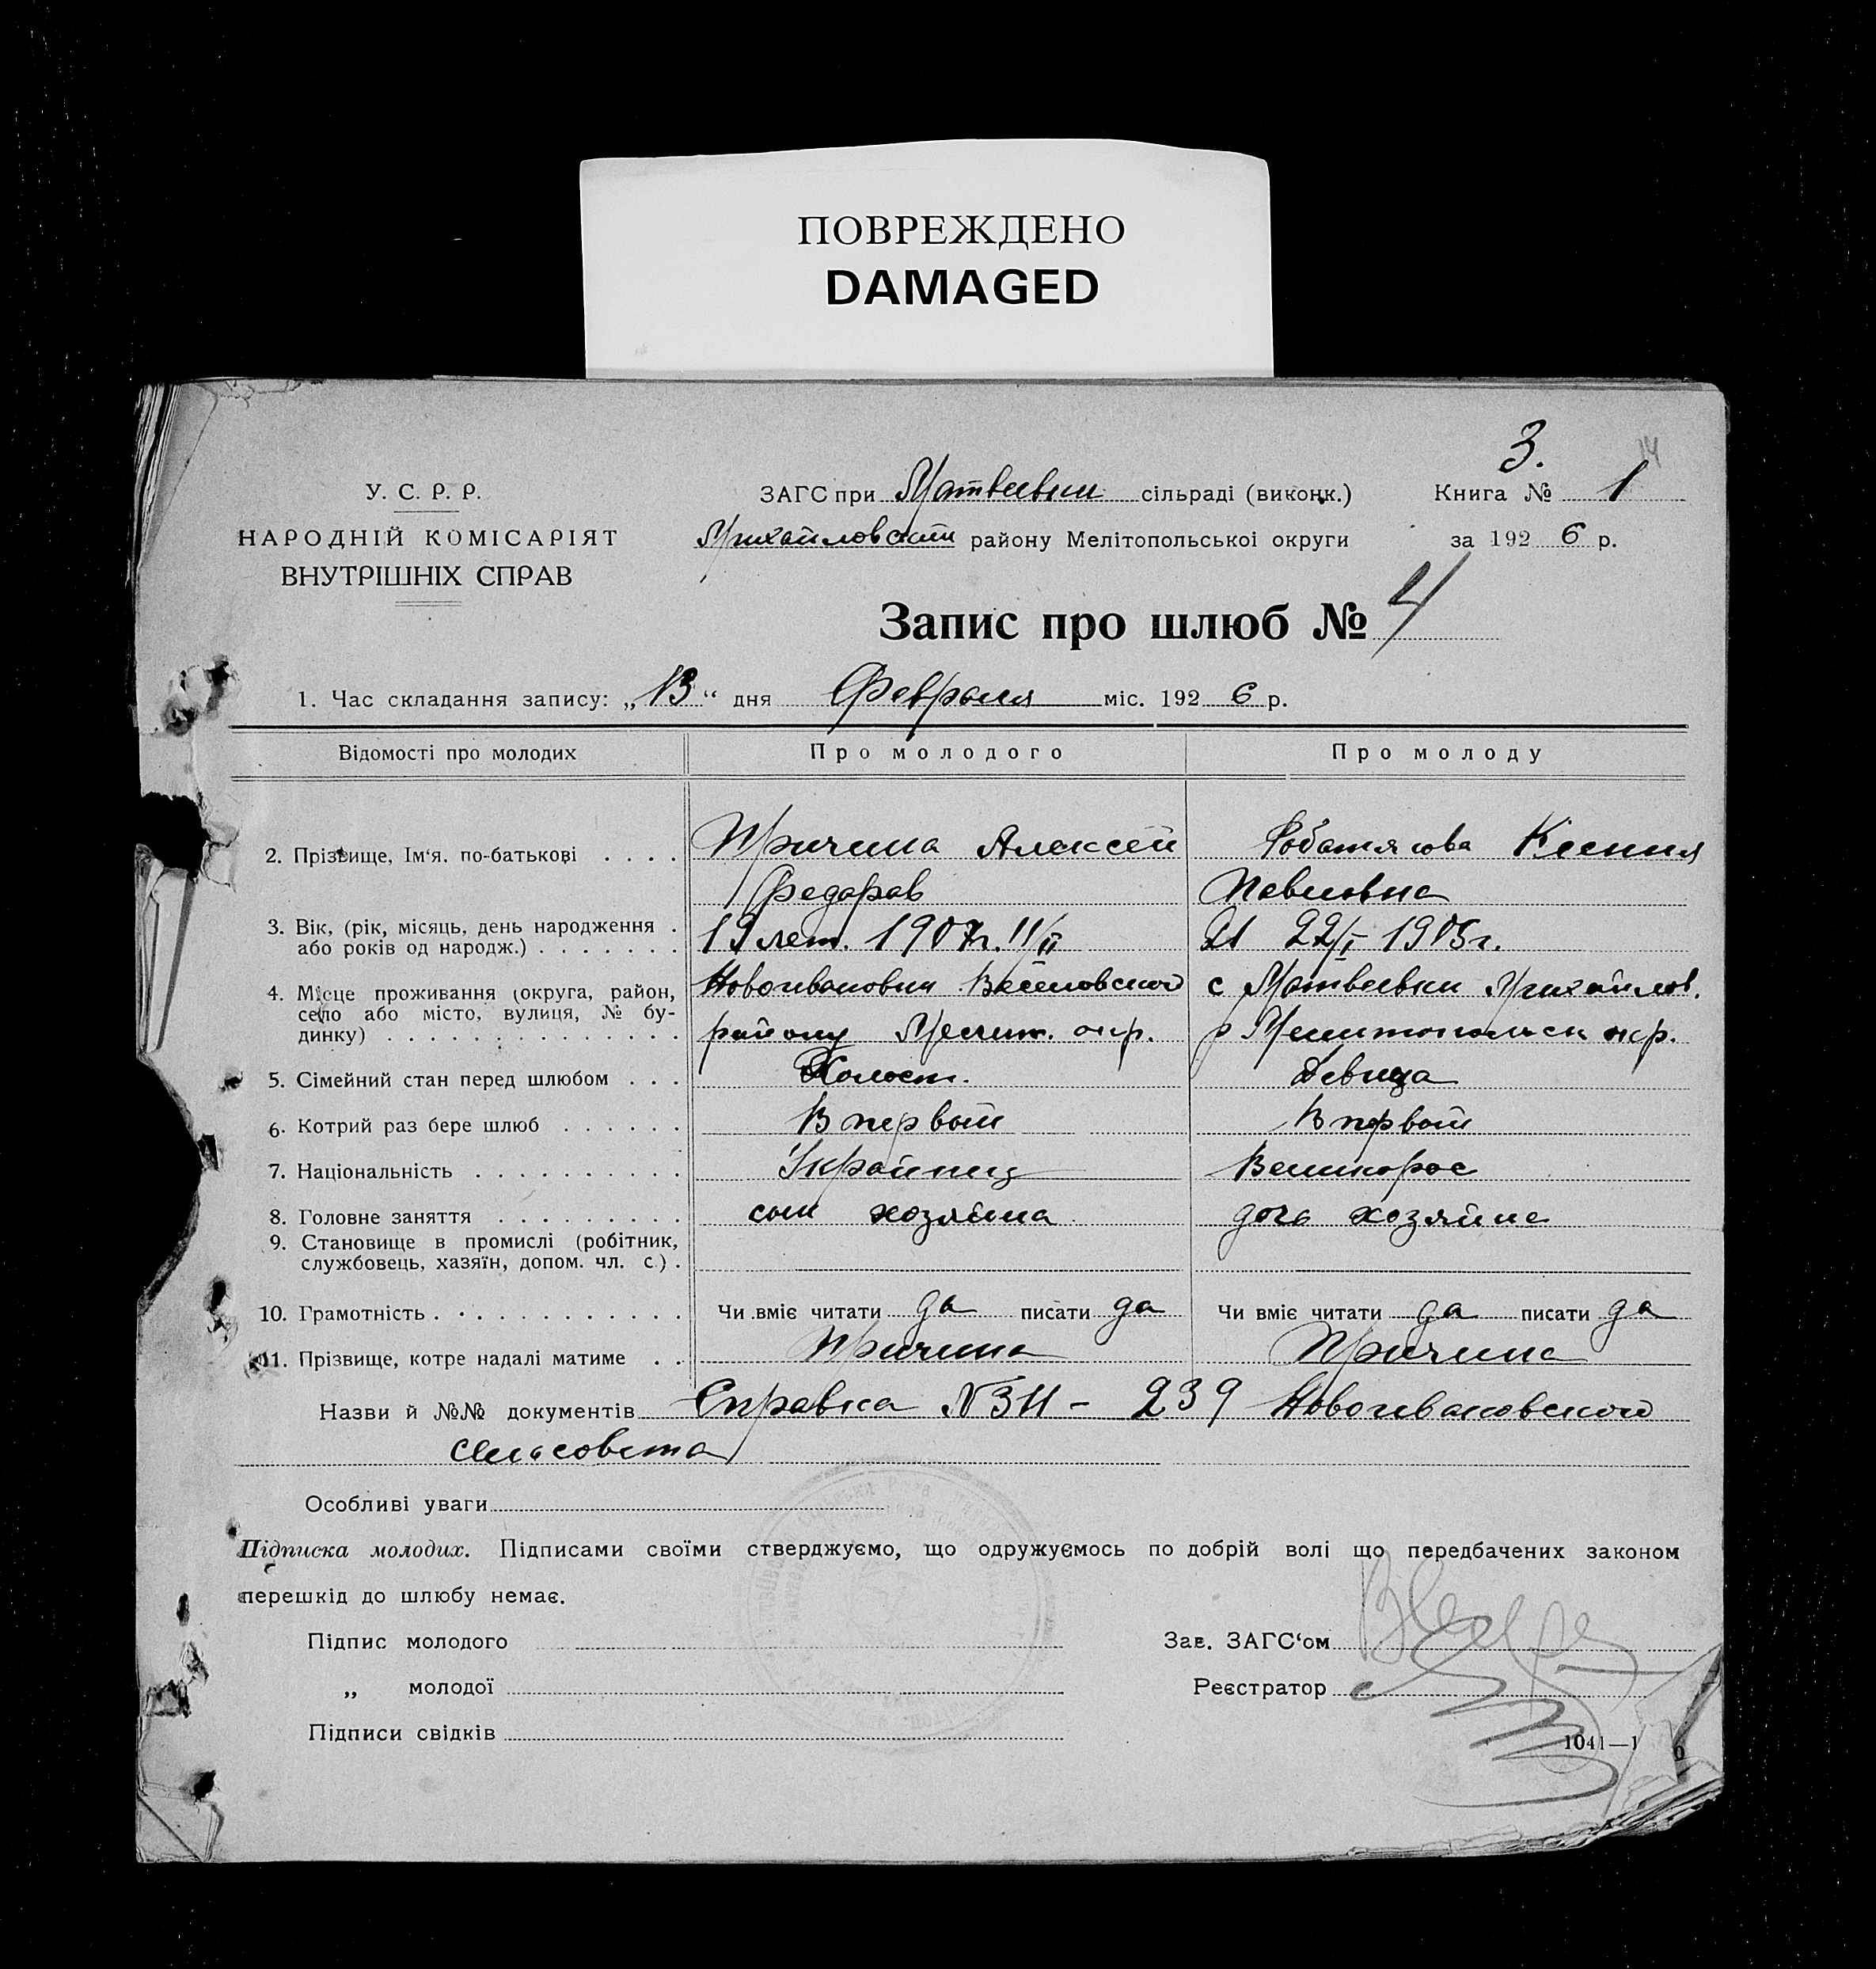 ПОВРЕЖДЕНО
DAMAGED
3.
14
У. С. Р. Р.
НАРОДНІЙ КОМІСАРІЯТ
ВНУТРІШНІХ СПРАВ
ЗАГС при Матвеевки сільраді (виконк.)
Михайловский району Мелітопольської округи
Книга № 1
за 1926 р.
Запис про шлюб № 4
1. Час складання запису: „13“ дня Февраля міс. 1926 р.
Відомості про молодих Про молодого Про молоду
2. Прізвище, Ім‘я. по-батькові . . . . Причина Алексей Ксения
Федоров Павловна
3. Вік, (рік, місяць, день народження . або років од народж.) . . . . . . . 19 лет. 1907г. 11/II 21 22/I 1905г.
4. Місце проживання (округа, район, Новоивановки Веселовского с Матвеевки Михайлов.
село або місто, вулиця, № бу-
динку) . . . . . . . . . . . . . . . району Мелит. окр. р Мелитопольск окр.
5. Сімейний стан перед шлюбом . . . Холост. Девица
6. Котрий раз бере шлюб . . . . . . В первый В первый
7. Національність . . . . . . . . . Украинец Великорос
8. Головне заняття . . . . . . . . . сын хозяина дочь хозяина
9. Становище в промислі (робітник,
службовець, хазяїн, допом. чл. с.) .
10. Грамотність . . . . . . . . . . . . Чи вміє читати да писати да Чи вміє читати да писати да
11. Прізвище, котре надалі матиме . . Причина Причина
Назви й №№ документів Справка N 311 - 239 Новоивановского
сельсовета
Особливі уваги
Підписка молодих. Підписами своїми стверджуємо, що одружуємось по добрій волі що передбачених законом
перешкід до шлюбу немає.
Підпис молодого
Зав. ЗАГС‘ом
„ молодої
Реєстратор
Підписи свідків
1041—1